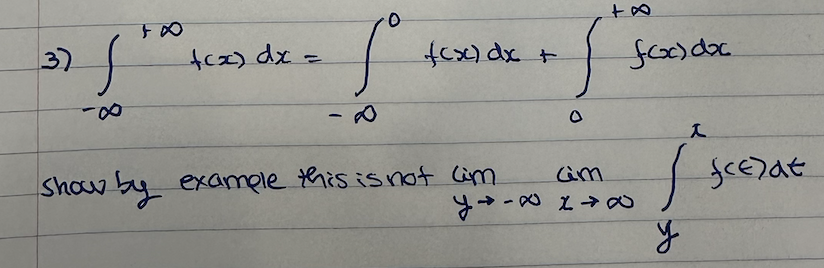 3) ∫_{-∞}^{+∞} f(x) dx = ∫_{-∞}^{0} f(x) dx + ∫_{0}^{+∞} f(x) dx
show by example this is not lim_{y→-∞} lim_{x→∞} ∫_{y}^{x} f(t) dt